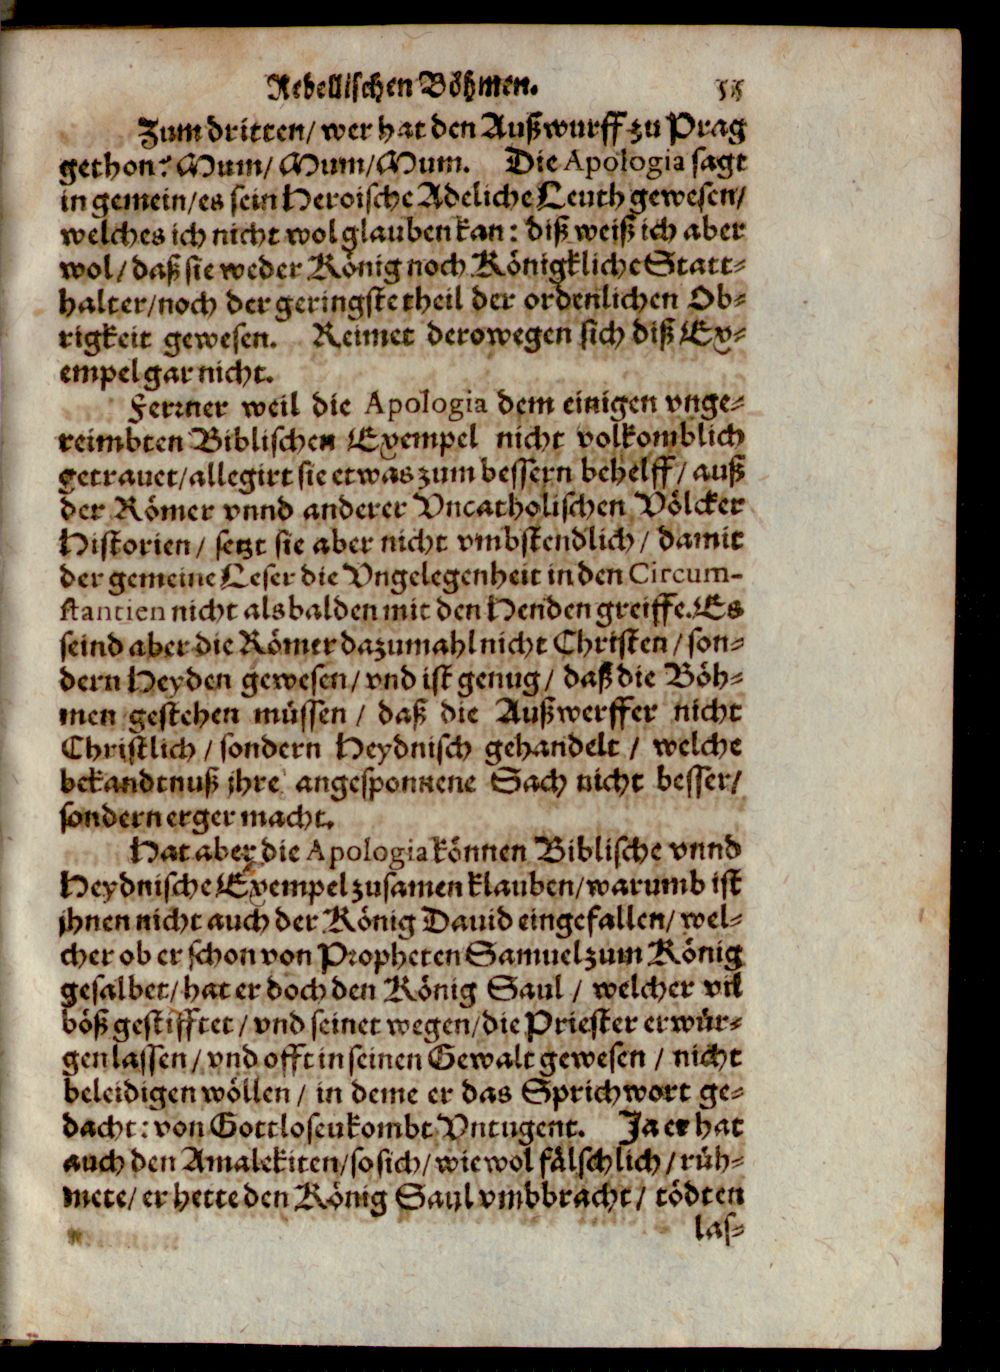 Rebellischen Böhmen. 55
Zum dritten/ wer hat den Außwurff zu Prag
gethon? Mum/ Mum/ Mum. Die Apologia sagt
in gemein/ es sein Heroische Adeliche Leuth gewesen/
welches ich nicht wol glauben kan: diß weiß ich aber
wol/ daß sie weder König noch Königkliche Statt-
halter/ noch der geringste theil der ordenlichen Ob-
rigkeit gewesen. Reimet derowegen sich diß Ex-
empel gar nicht.
Ferrner weil die Apologia dem einigen vnge-
reimbten Biblischen Exempel nicht volkomblich
getrauet/ allegirt sie etwas zum bessern behelff/ auß
der Römer vnnd anderer Vncatholischen Völcker
Historien/ setzt sie aber nicht vmbstendlich/ damit
der gemeine Leser die Vngelegenheit in den Circum-
stantien nicht alsbalden mit den Henden greiffe. Es
seind aber die Römer dazumahl nicht Christen/ son-
dern Heyden gewesen/ vnd ist genug/ daß die Böh-
men gestehen müssen/ daß die Außwerffer nicht
Christlich/ sondern Heydnisch gehandelt/ welche
bekandtnuß jhre angesponnene Sach nicht besser/
sondern erger macht.
Hat aber die Apologia können Biblische vnnd
Heydnische Exempel zusamen klauben/ warumb ist
jhnen nicht auch der König Dauid eingefallen/ wel-
cher ob er schon von Propheten Samuel zum König
gesalbet/ hat er doch den König Saul/ welcher vil
böß gestifftet/ vnd seinet wegen/ die Priester erwür-
gen lassen/ vnd offt in seinen Gewalt gewesen/ nicht
beleidigen wöllen/ in deme er das Sprichwort ge-
dacht: von Gottlosen kombt Vntugent. Ja er hat
auch den Amalekiten/ so sich/ wiewol fälschlich/ rüh-
mete/ er hette den König Saul vmbbracht/ tödten
las-